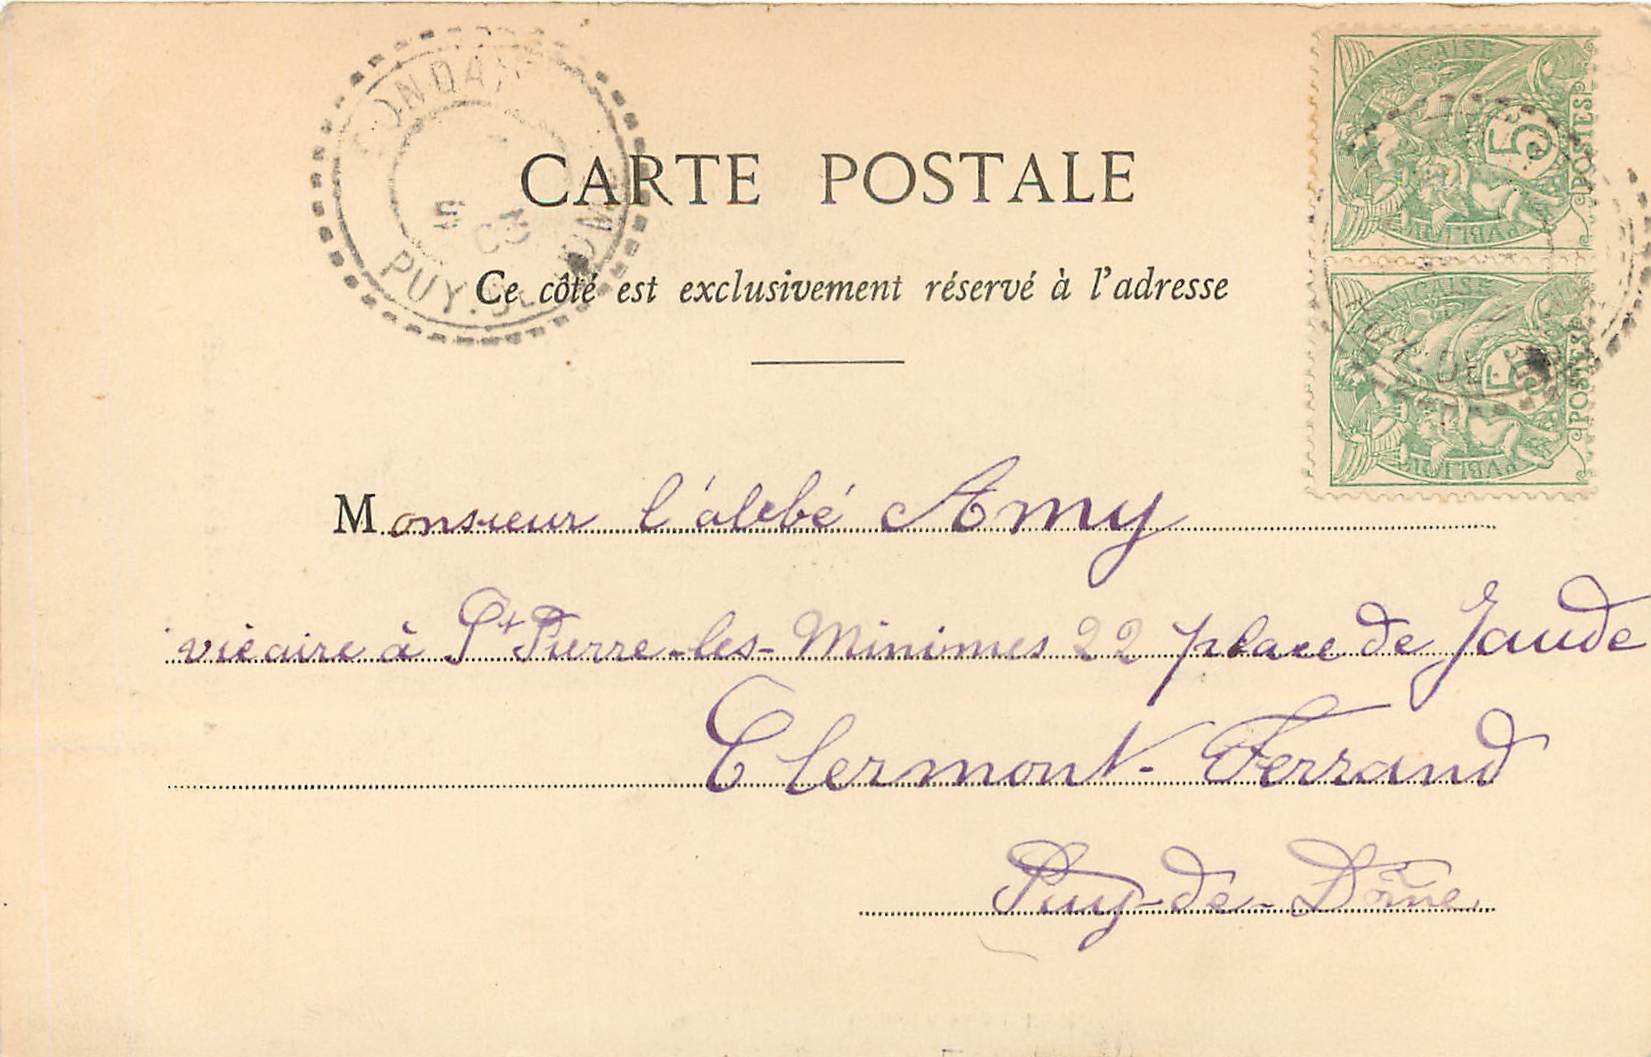 CARTE POSTALE
Ce côté est exclusivement réservé à l'adresse
Monsieur l'abbé Amy
vicaire à St Pierre-les-Minimes 22 place de Jaude
Clermont-Ferrand
Puy-de-Dôme
PUY-DE-DOME
03
FRANÇAISE
5
POSTES
PUBLIQUE
FRANÇAISE
5
POSTES
PUBLIQUE